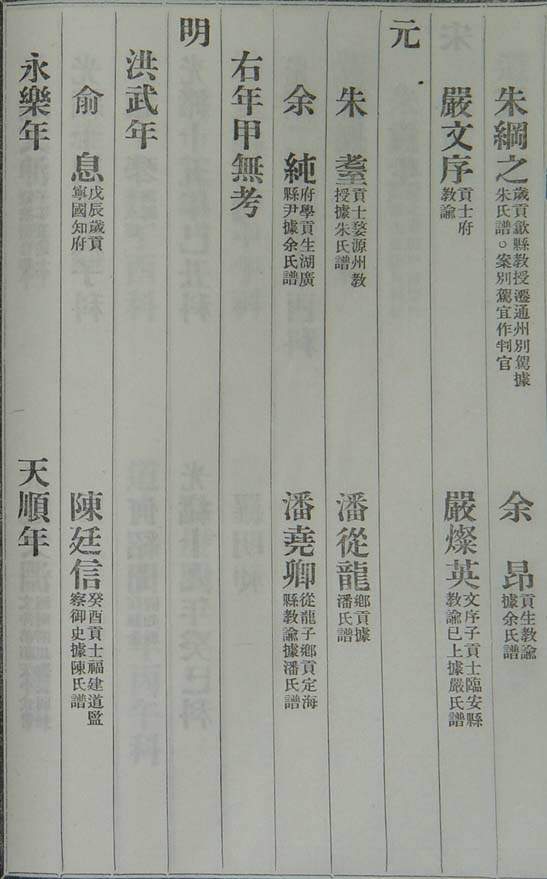 朱綱之 歲貢歙縣教授遷通州別駕據朱氏譜○案別駕宜作判官 余昂 貢生教諭據余氏譜
嚴文序 貢士府教諭 嚴燦英 文序子貢士臨安縣教諭已上據嚴氏譜
元
朱𦒿 貢士婺源州教授據朱氏譜 潘從龍 鄉貢據潘氏譜
余純 府學貢生湖廣縣尹據余氏譜 潘堯卿 從龍子鄉貢定海縣教諭據潘氏譜
右年甲無考
明
洪武年
俞息 戊辰歲貢寧國知府 陳廷信 癸酉貢士福建道監察御史據陳氏譜
永樂年 天順年